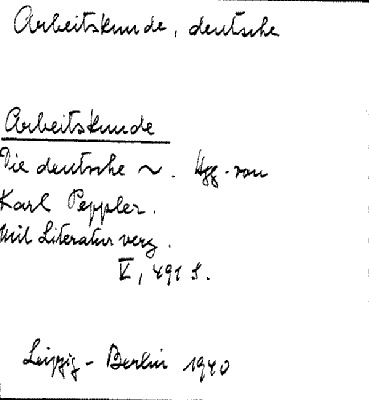 Arbeitskunde, deutsche
Arbeitskunde
Die deutsche ~. Hgg. von
Karl Peppler.
Mit Literaturverz.
V, 491 S.
Leipzig - Berlin 1940